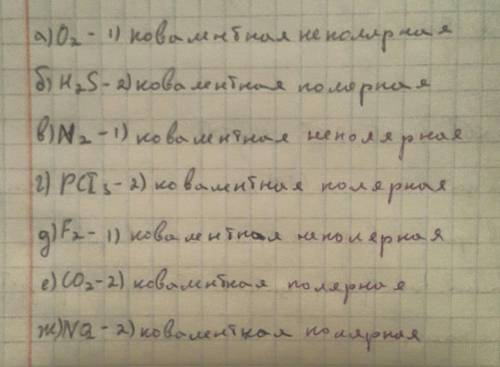 а) O₂ - 1) ковалентная неполярная
б) H₂S - 2) ковалентная полярная
в) N₂ - 1) ковалентная неполярная
г) PCl₅ - 2) ковалентная полярная
д) F₂ - 1) ковалентная неполярная
е) CO₂ - 2) ковалентная полярная
ж) - 2) ковалентная полярная